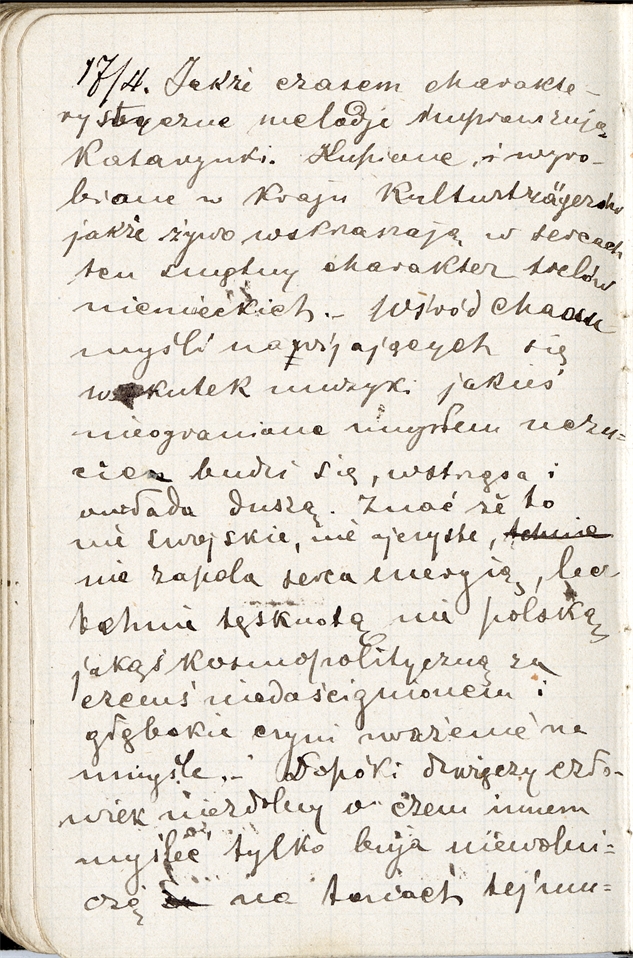 17/4. Jakże czasem charakte-
rystyczne melodje improwizują
Katarynki. Kupione i wyro-
biane w kraju Kulturträgerów
jakże żywo wskrzeszają w sercach
ten smętny charakter trelów
niemieckich. - Wśród chaosu
myśli nawijających się
wskutek muzyki jakieś
nieogarnione umysłem uczu-
cie budzi się, wstrząsa i
owłada duszą. Znać że to
nie swojskie, nie ojczyste, tchnie
nie zapala serca energią, lecz
tchnie tęsknotą nie polską,
jakąś kosmopolityczną za
czemś niedoścignionem i
głębokie czyni wrażenie na
umyśle. - Dopóki dźwięczy czło-
wiek niezdolny o czem innem
myśleć tylko buja niewolni-
czo na toniach tej mu=